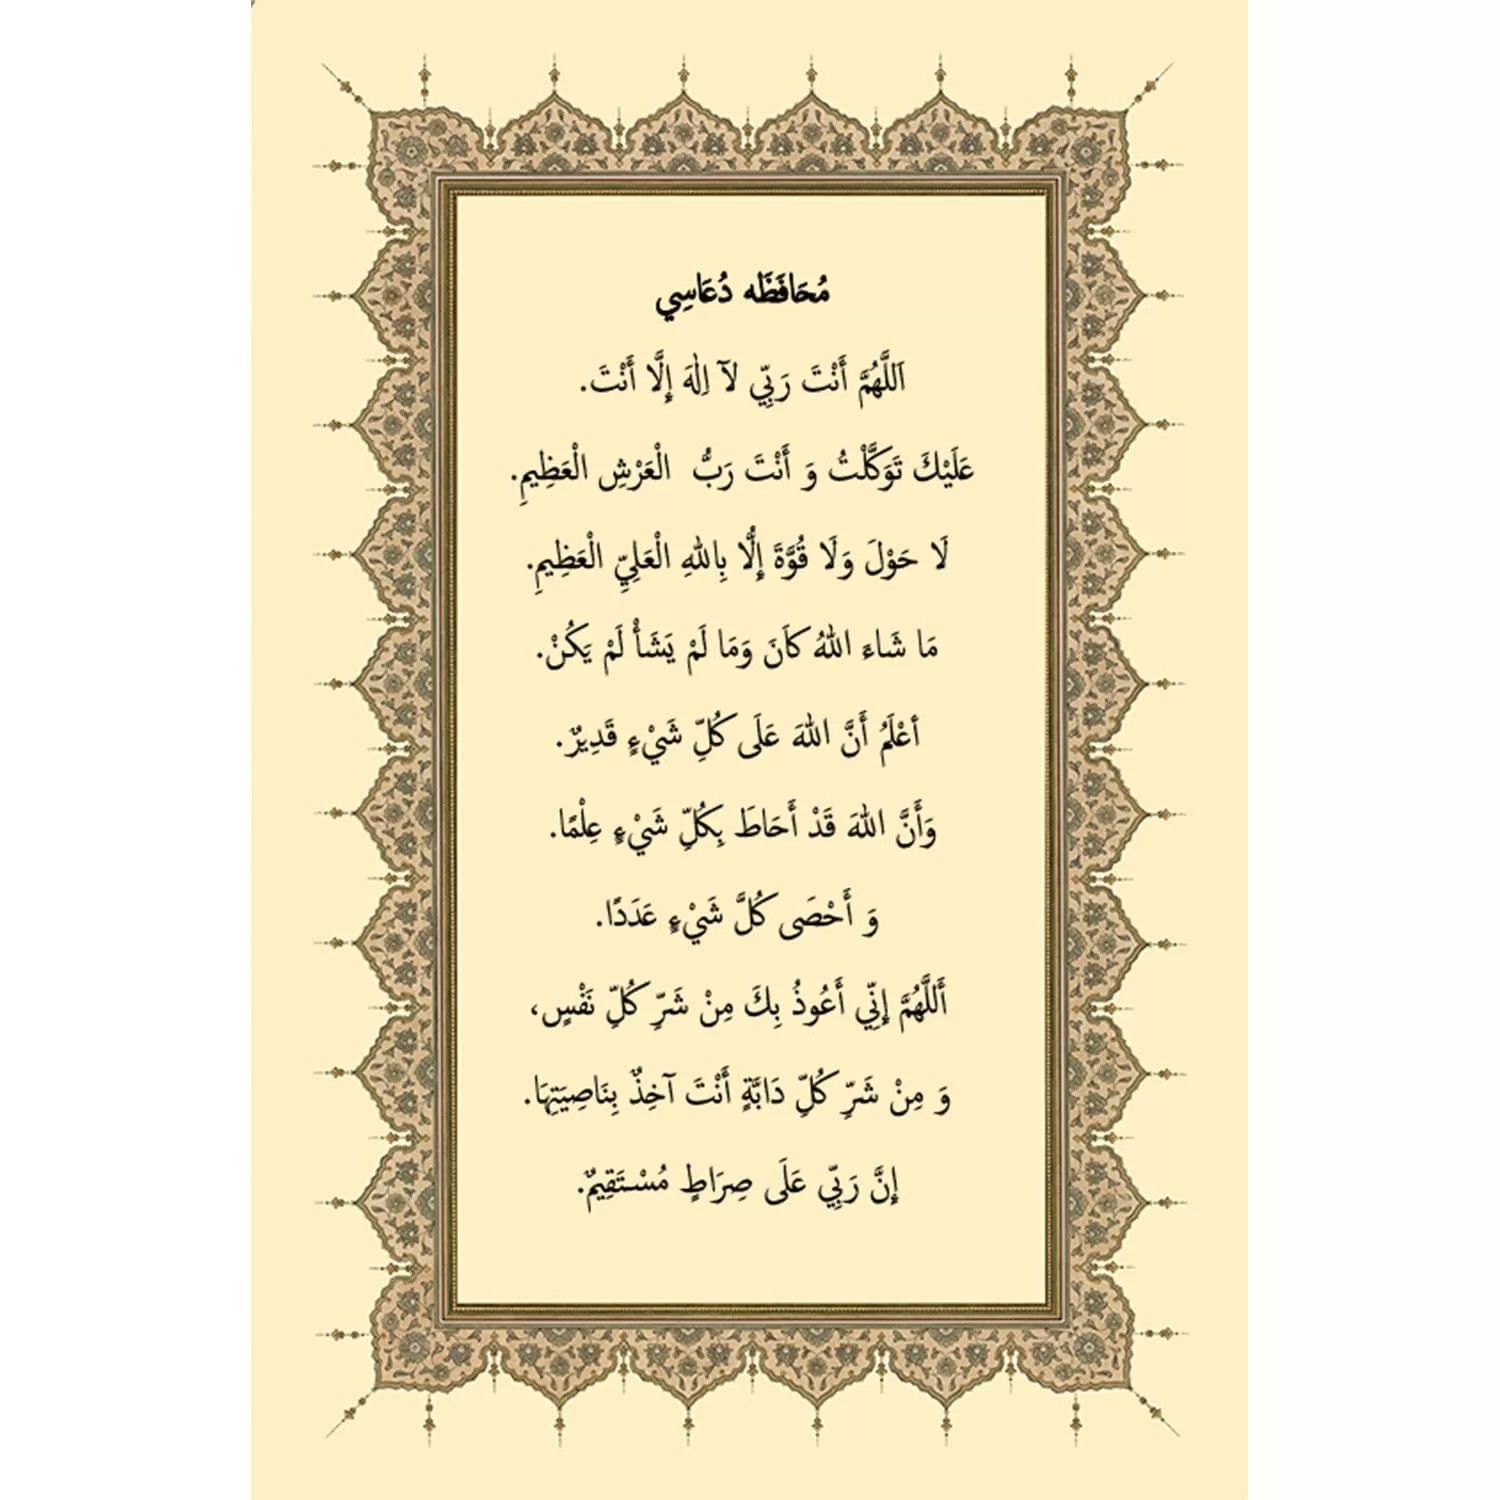 مُحَافَظَه دُعَاسِي
اَللَّهُمَّ أَنْتَ رَبِّي لآ اِلٰهَ إِلَّا أَنْتَ.
عَلَيْكَ تَوَكَّلْتُ وَ أَنْتَ رَبُّ الْعَرْشِ الْعَظِيمِ.
لَا حَوْلَ وَلَا قُوَّةَ إِلَّا بِاللهِ الْعَلِيِّ الْعَظِيمِ.
مَا شَاءَ اللهُ كَانَ وَمَا لَمْ يَشَأْ لَمْ يَكُنْ.
أعْلَمُ أَنَّ اللهَ عَلَى كُلِّ شَيْءٍ قَدِيرٌ.
وَأَنَّ اللهَ قَدْ أَحَاطَ بِكُلِّ شَيْءٍ عِلْمًا.
وَ أَحْصَى كُلَّ شَيْءٍ عَدَدًا.
أَللَّهُمَّ إِنِّي أَعُوذُ بِكَ مِنْ شَرِّ كُلِّ نَفْسٍ،
وَ مِنْ شَرِّ كُلِّ دَابَّةٍ أَنْتَ آخِذٌ بِنَاصِيَتِهَا.
إِنَّ رَبِّي عَلَى صِرَاطٍ مُسْتَقِيمٌ.